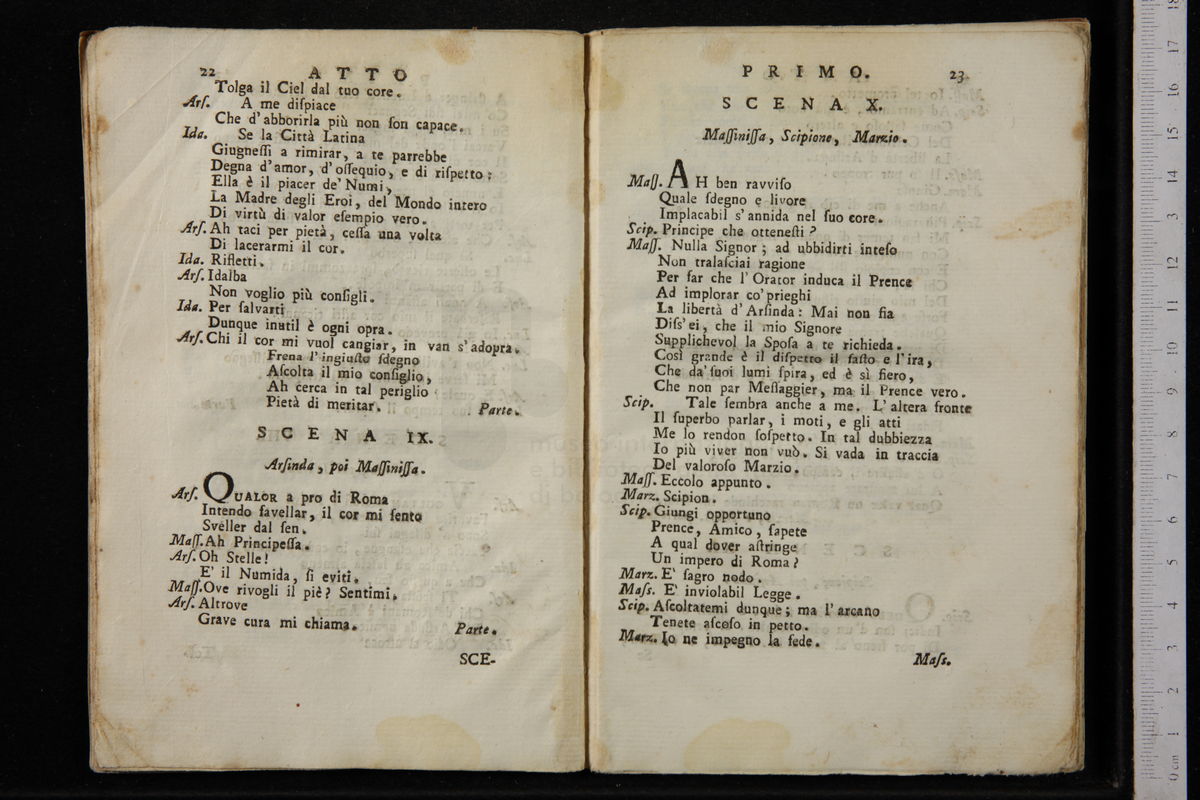 22 ATTO
Tolga il Ciel dal tuo core.
Arſ. A me diſpiace
Che d'abborirla più non ſon capace.
Ida. Se la Città Latina
Giugneſſi a rimirar, a te parrebbe
Degna d'amor, d'oſſequio, e di riſpetto;
Ella è il piacer de' Numi,
La Madre degli Eroi, del Mondo intero
Di virtù di valor eſempio vero.
Arſ. Ah taci per pietà, ceſſa una volta
Di lacerarmi il cor.
Ida. Rifletti.
Arſ. Idalba
Non voglio più conſigli.
Ida. Per ſalvarti
Dunque inutil è ogni opra.
Arſ. Chi il cor mi vuol cangiar, in van s'adopra.
Frena l'ingiuſto ſdegno
Aſcolta il mio conſiglio,
Ah cerca in tal periglio
Pietà di meritar. Parte.
SCENA IX.
Arſinda, poi Maſſiniſſa.
Arſ. QUALOR a pro di Roma
Intendo favellar, il cor mi ſento
Sveller dal ſen.
Maſſ. Ah Principeſſa.
Arſ. Oh Stelle!
E' il Numida, ſi eviti.
Maſſ. Ove rivogli il piè? Sentimi.
Arſ. Altrove
Grave cura mi chiama. Parte.
SCE-
PRIMO. 23
SCENA X.
Maſſiniſſa, Scipione, Marzio.
Maſſ. AH ben ravviſo
Quale ſdegno e livore
Implacabil s'annida nel ſuo core.
Scip. Principe che otteneſti?
Maſſ. Nulla Signor; ad ubbidirti inteſo
Non tralaſciai ragione
Per far che l'Orator induca il Prence
Ad implorar co' prieghi
La libertà d'Arſinda: Mai non fia
Diſs'ei, che il mio Signore
Supplichevol la Spoſa a te richieda.
Così grande è il diſpetto il faſto e l'ira,
Che da' ſuoi lumi ſpira, ed è sì fiero,
Che non par Meſſaggier, ma il Prence vero.
Scip. Tale ſembra anche a me. L'altera fronte
Il ſuperbo parlar, i moti, e gli atti
Me lo rendon ſoſpetto. In tal dubbiezza
Io più viver non vuò. Si vada in traccia
Del valoroſo Marzio.
Maſſ. Eccolo appunto.
Marz. Scipion.
Scip. Giungi opportuno
Prence, Amico, ſapete
A qual dover aſtringe
Un impero di Roma?
Marz. E' ſagro nodo.
Maſs. E' inviolabil Legge.
Scip. Aſcoltatemi dunque; ma l'arcano
Tenete aſcoſo in petto.
Marz. Io ne impegno la fede.
Maſs.